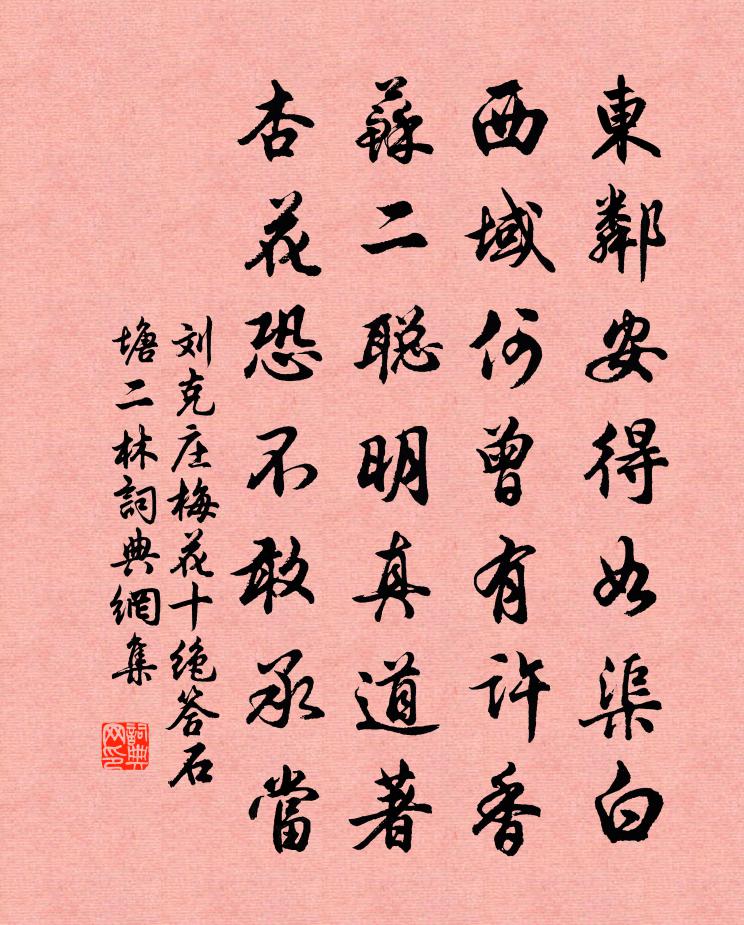 東鄰安得如渠白
西域何曾有許香
蘇二聰明真道著
杏花恐不敢承當
刘克庄梅花十绝答石
塘二林詞典網集
詞典
网印